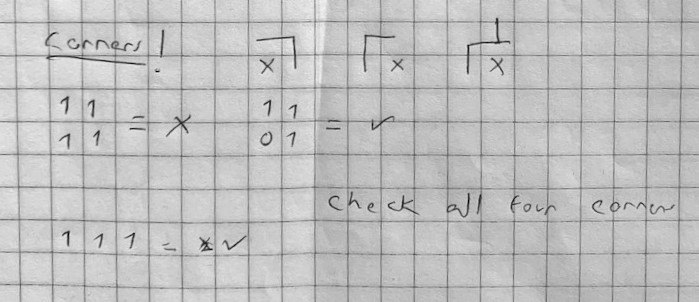 Corners!
x x x
1 1 1 1
1 1 = x 0 1 = ✓
check all four corner
1 1 1 = ✓